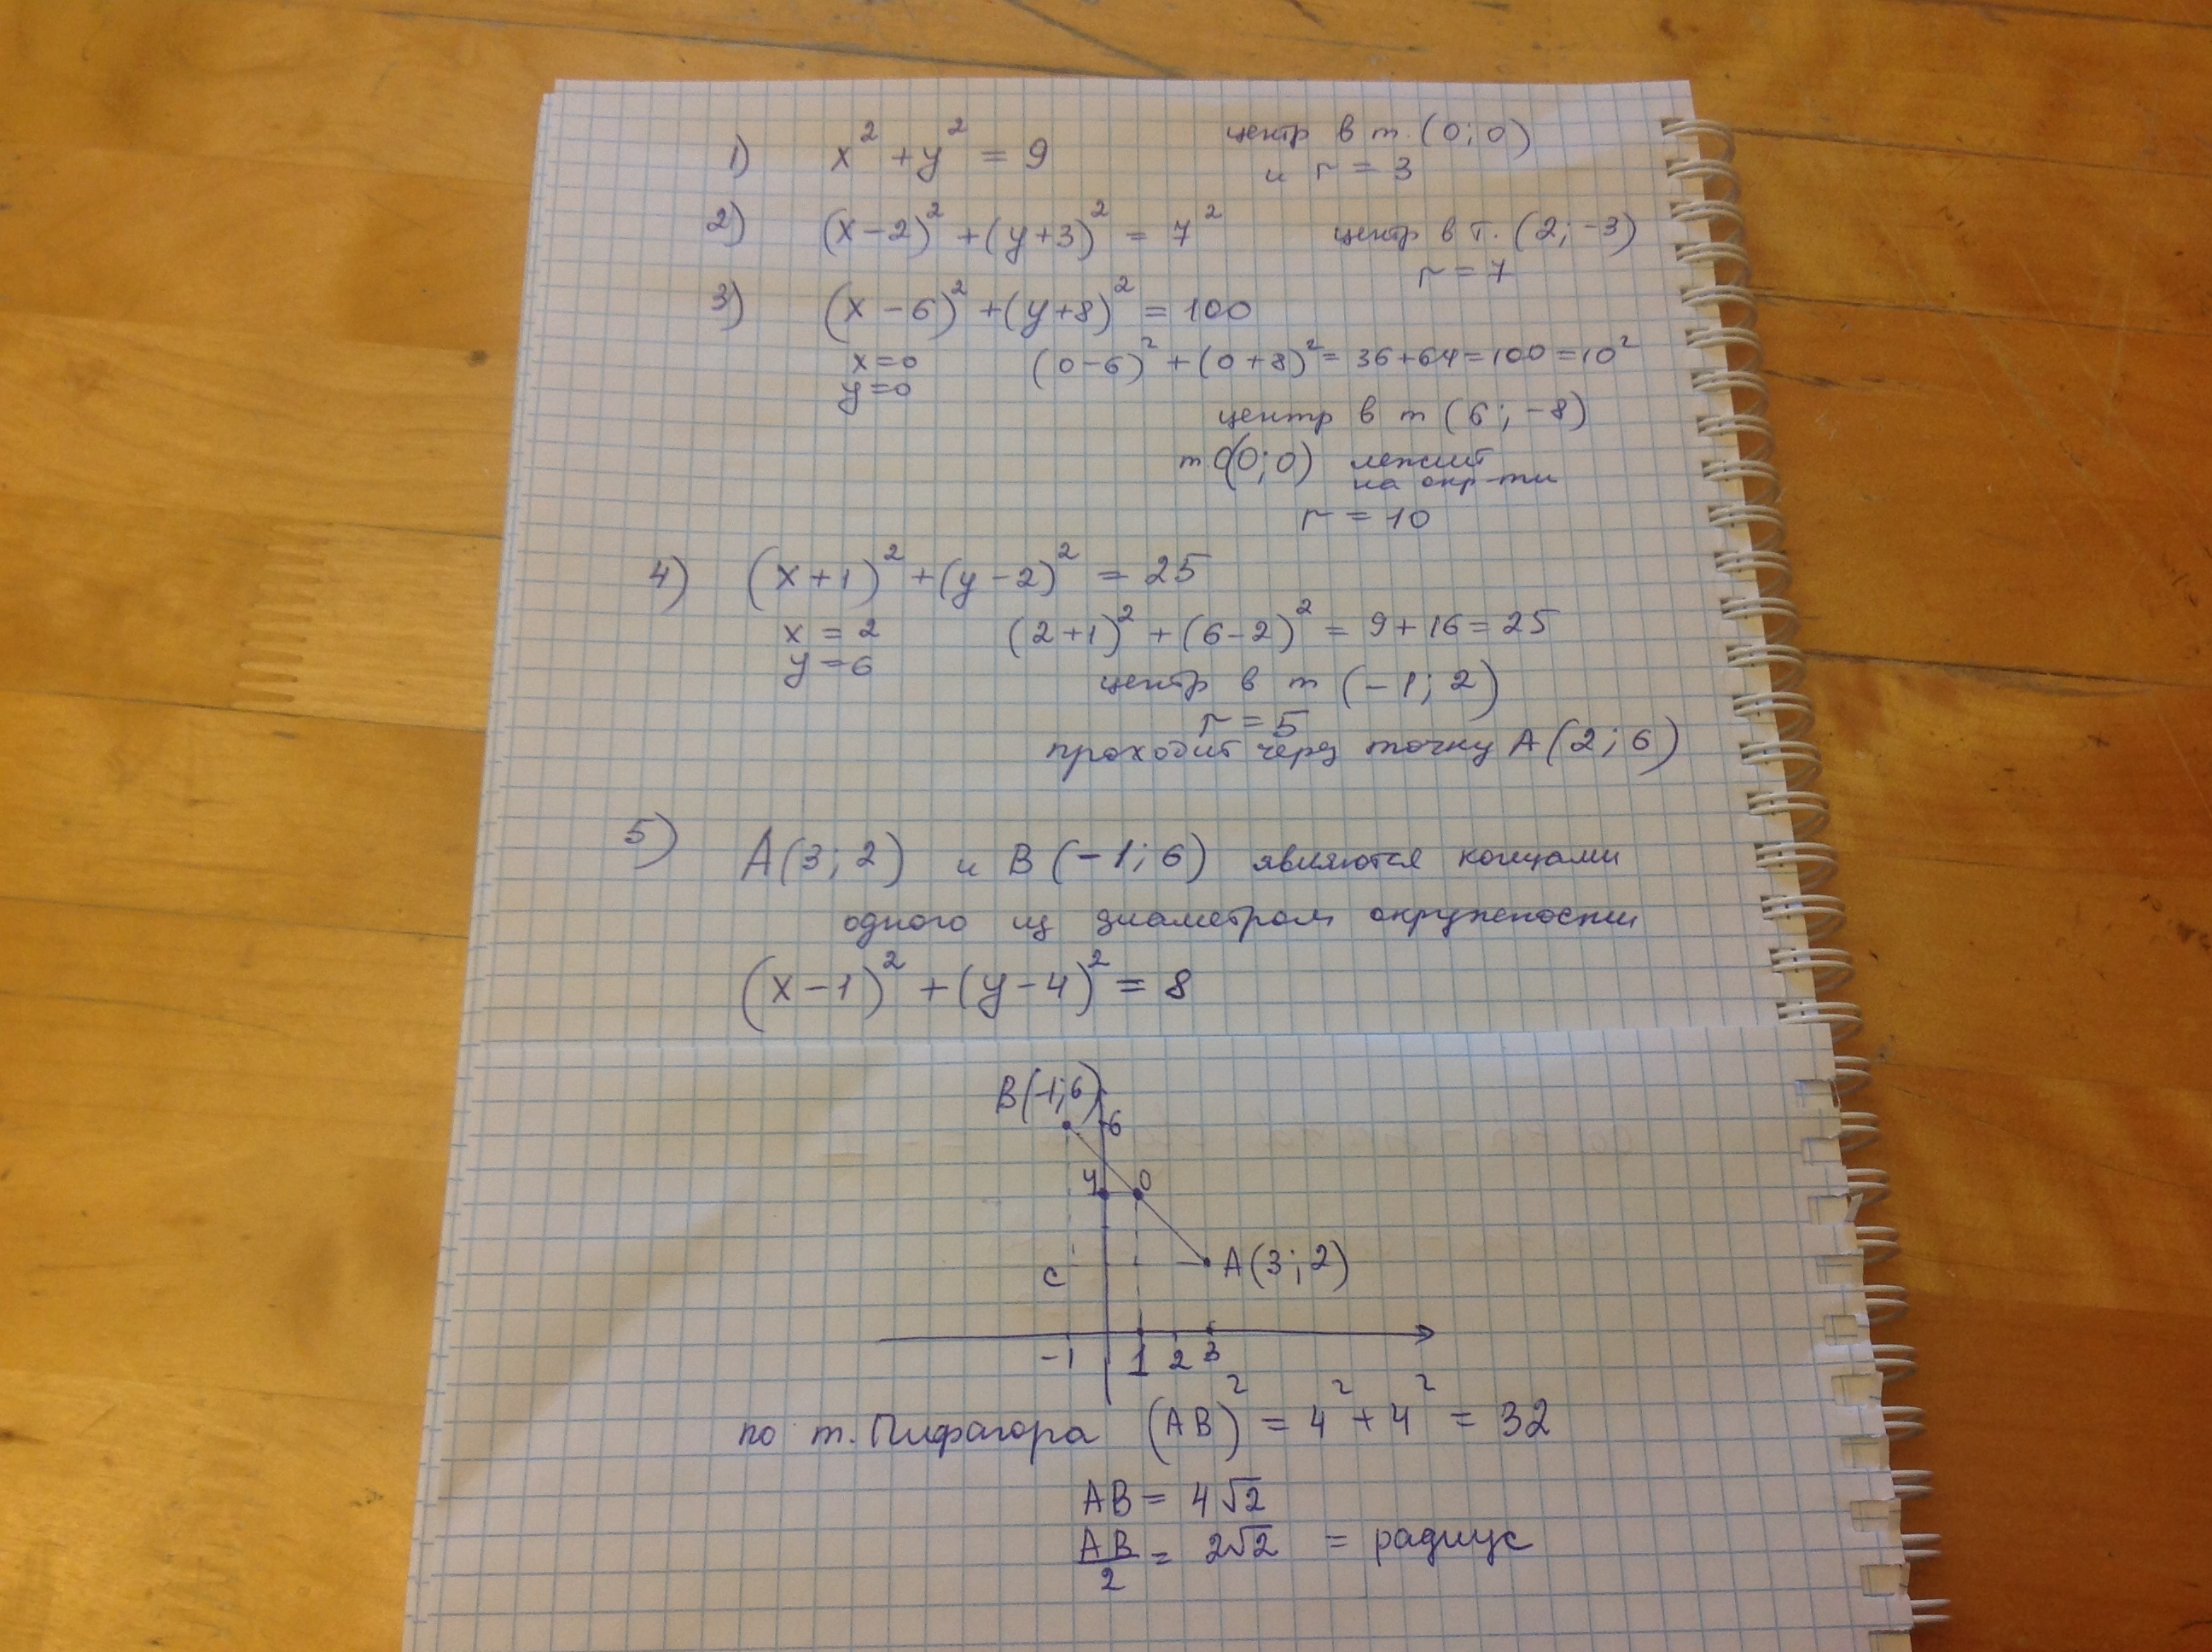 1) x² + y² = 9 центр в т. (0; 0)
и r = 3
2) (x-2)² + (y+3)² = 7² центр в т. (2; -3)
r = 7
3) (x-6)² + (y+8)² = 100
x=0 (0-6)² + (0+8)² = 36+64=100=10²
y=0
центр в т (6; -8)
т O(0; 0) лежит
на окр-ти
r = 10
4) (x+1)² + (y-2)² = 25
x = 2 (2+1)² + (6-2)² = 9+16=25
y = 6
центр в т (-1; 2)
r = 5
проходит через точку A(2; 6)
5) A(3; 2) и B(-1; 6) являются концами
одного из диаметром окружности
(x-1)² + (y-4)² = 8
B(-1;6)
6
4 O
A(3; 2)
C
-1 1 2 3
по т. Пифагора (AB)² = 4² + 4² = 32
AB = 4√2
AB/2 = 2√2 = радиус